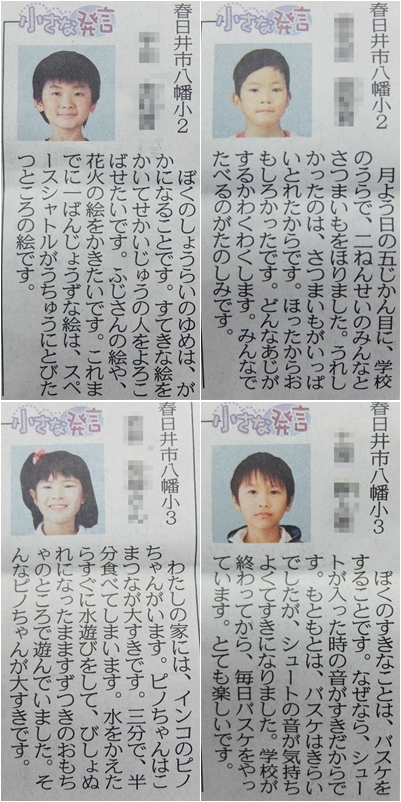 小さな発言
春日井市八幡小2
ぼくのしょうらいのゆめは、が
かになることです。すてきな絵を
かいてせかいじゅうの人をよろこ
ばせたいです。ふじさんの絵や、
花火の絵をかきたいです。これま
でに一ばんじょうずな絵は、スペ
ースシャトルがうちゅうにとびた
つところの絵です。
小さな発言
春日井市八幡小2
月よう日の五じかん目に、学校
のうらで、二ねんせいのみんなと
さつまいもをほりました。うれし
かったのは、さつまいもがいっぱ
いとれたからです。ほったからお
もしろかったです。どんなあじが
するかわくわくします。みんなで
たべるのがたのしみです。
小さな発言
春日井市八幡小3
わたしの家には、インコのピノ
ちゃんがいます。ピノちゃんはこ
まつなが大すきです。三分で、半
分食べてしまいます。水をかえた
らすぐに水遊びをして、びしょぬ
れになったまますずつきのおもち
ゃのところで遊んでいました。そ
んなピノちゃんが大すきです。
小さな発言
春日井市八幡小3
ぼくのすきなことは、バスケを
することです。なぜなら、シュー
トが入った時の音がすきだからで
す。もともとは、バスケはきらい
でしたが、シュートの音が気持ち
よくてすきになりました。学校が
終わってから、毎日バスケをやっ
ています。とても楽しいです。